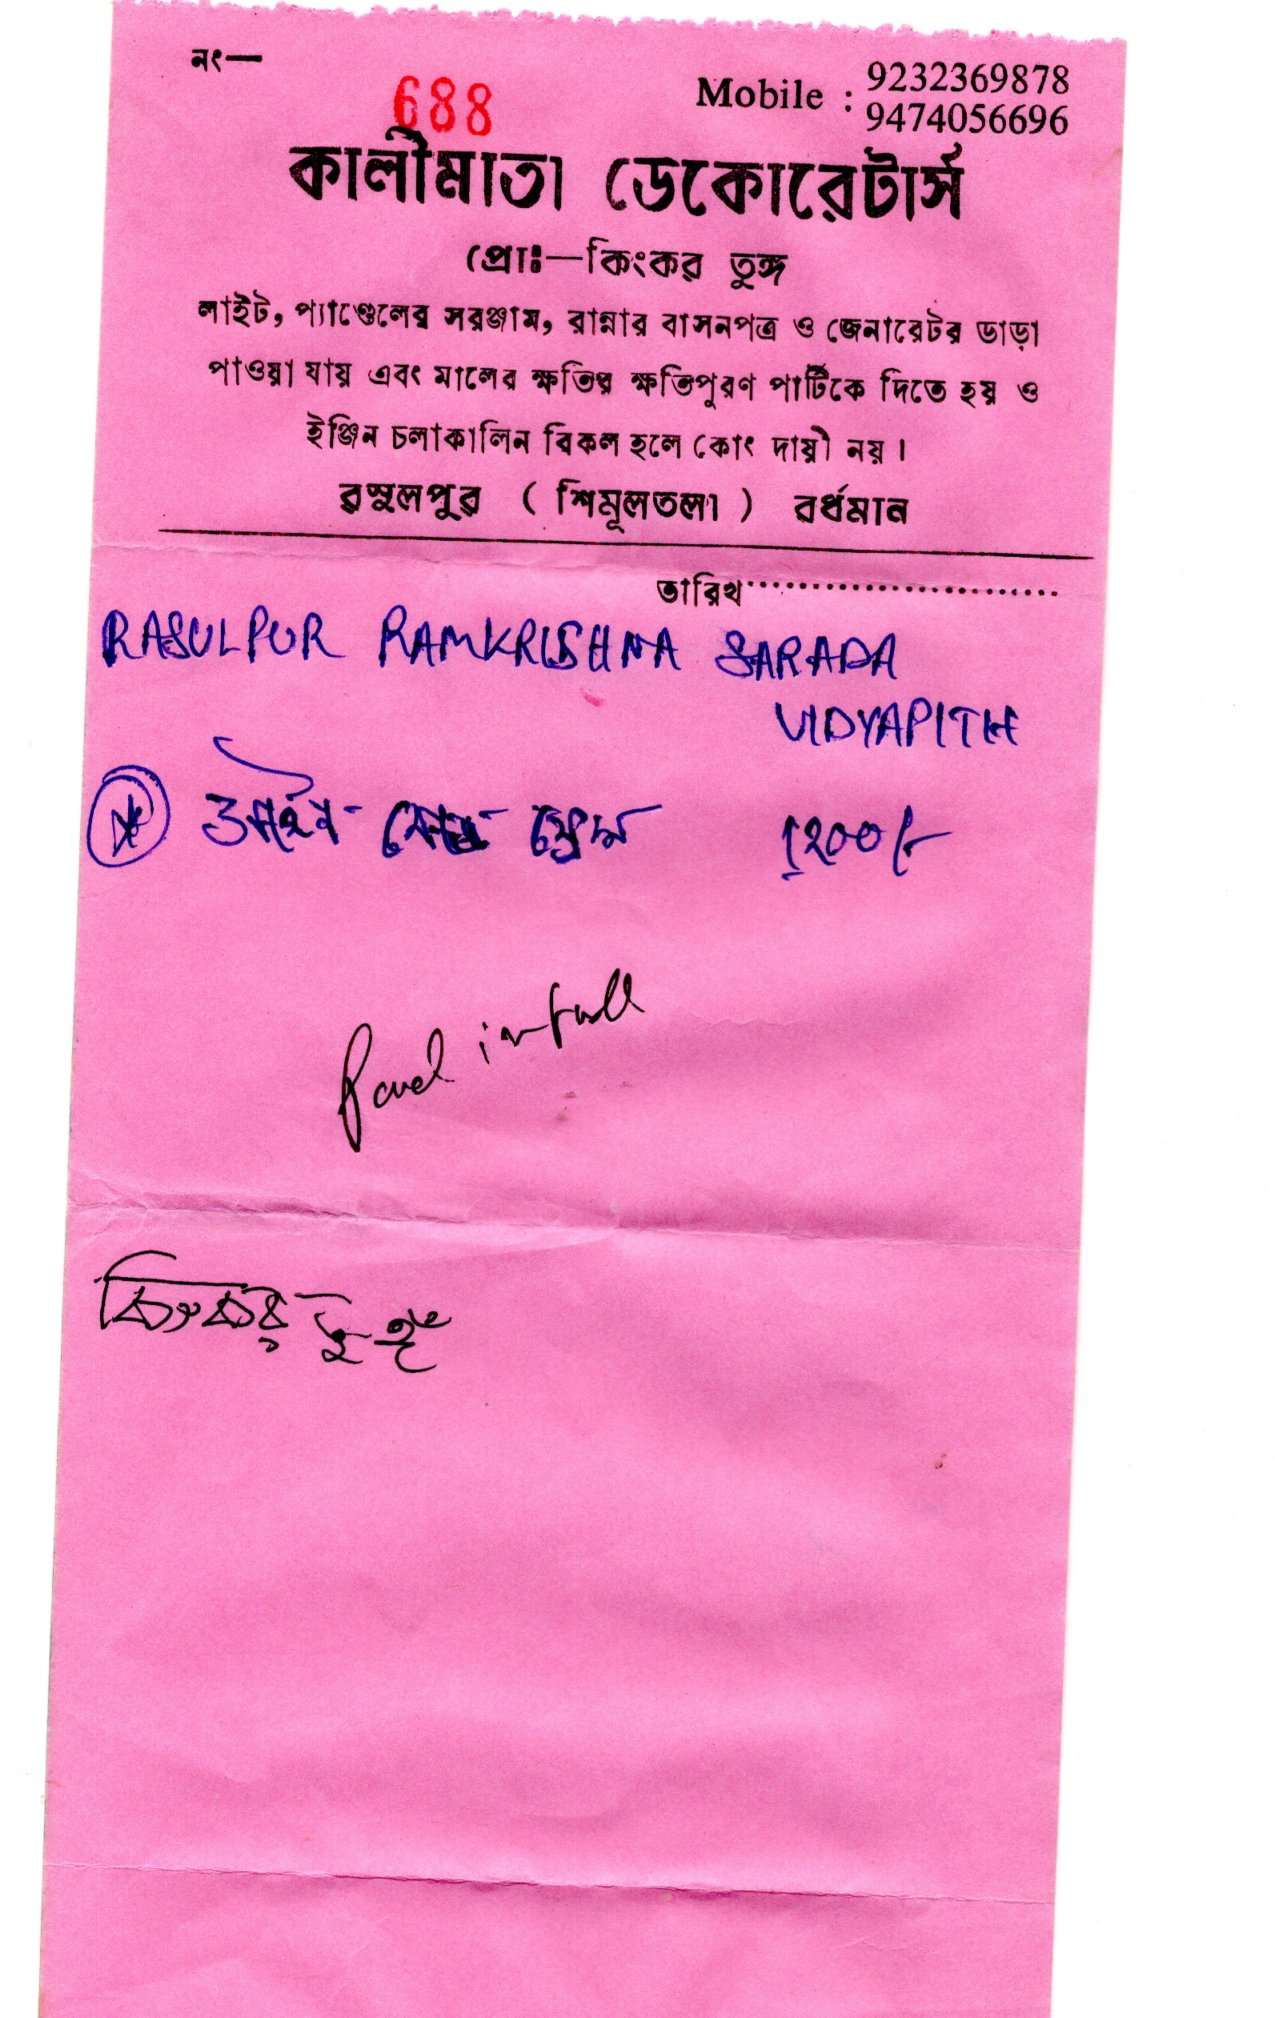 নং—
688
Mobile : 9232369878
9474056696
কালীমাতা ডেকোরেটার্স
প্রোঃ—কিংকর তুঙ্গ
লাইট, প্যাণ্ডেলের সরঞ্জাম, রান্নার বাসনপত্র ও জেনারেটর ভাড়া
পাওয়া যায় এবং মালের ক্ষতির ক্ষতিপুরণ পার্টিকে দিতে হয় ও
ইঞ্জিন চলাকালিন বিকল হলে কোং দায়ী নয়।
রসুলপুর ( শিমূলতলা ) বর্ধমান
তারিখ........................
RASULPUR RAMKRISHNA SARADA
VIDYAPITH
১২০০/-
Paid in full
কিংকর তুঙ্গ